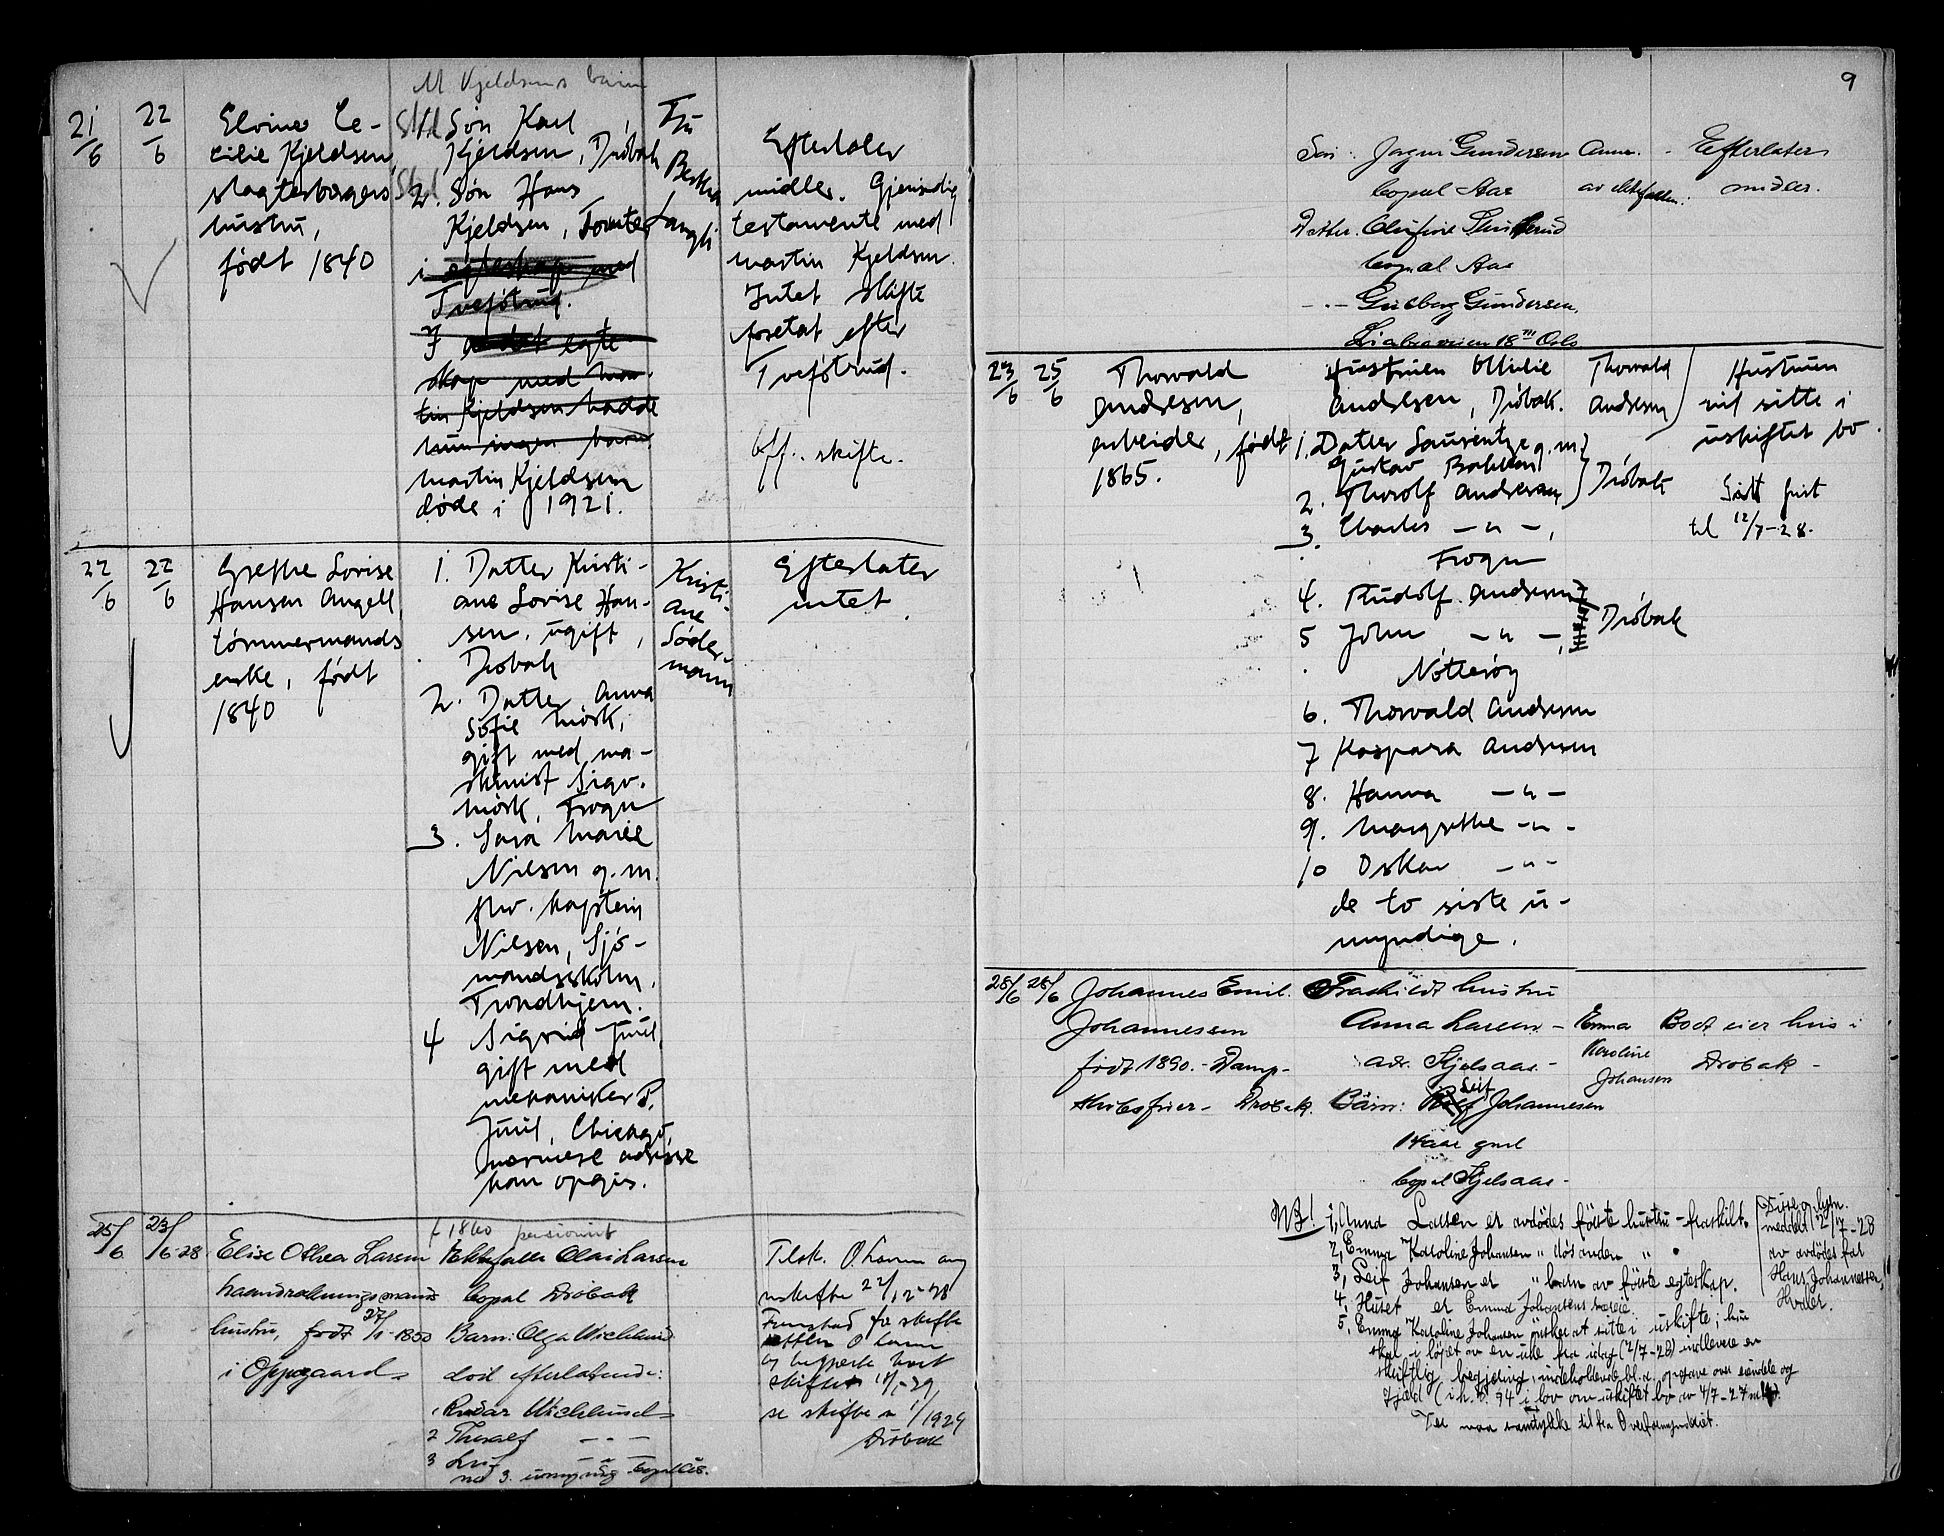 M Kjeldsens barn
21/6
22/6
Elvine Ce-
cilie Kjeldsen,
slagterborgers
hustru,
født 1840
Søn Karl
Kjeldsen, Drøbak
2. Søn Hans
Kjeldsen, Tomter
i egteskap med
Tvefótrud.
I andet egte-
skap med Mar-
tin Kjeldsen hadde
hun ingen barn.
Martin Kjeldsen
døde i 1921.
Fru
Bertha
Langli
Efterlater
midler. Gjensidig
testamente med
Martin Kjeldsen.
Intet skifte
foretat efter
Tvefótrud.
Off. skifte.
22/6
22/6
Grethe Lovise
Hansen Angell
tømmermands
enke, født
1840
1. Datter Kristi-
ane Lovise Han-
sen, ugift,
Drøbak
2. Datter Anna
Sofie Mørk,
gift med ma-
skinist Sigv.
Mørk, Frogn
3. Sara Marie
Nilsen g.m.
fhv. kaptein
Nilsen, Sjø-
mandsskolen,
Trondhjem.
4 Sigrid Juul
gift med
mekaniker P.
Juul, Chicago,
nærmere adresse
kan opgis.
Kristi-
ane
Söder-
mann
Efterlater
intet.
25/6
23/6-28
Elise Othea Larsen
hustru, født 27/1-1850
i Oppegaard
f 1860 pensionist
Ektefelle Olai Larsen
bopel Drøbak
Barn: Olga Wicklund
død efterlatende:
1 Reidar Wicklund
2 Thoralf — " —
3 Leif — " —
no 3. umyndig
Tilsk. O. Larsen ang
uskifte 22/12-28
skifte 1/1929
Drøbak
9
Søn: Jørgen Gundersen
bopæl Aas
Datter. Olufine
bopæl Aas
— " — Gulborg Gundersen,
18 III Oslo
Anm.
av ektefællen.
Efterlater
midler.
23/6
25/6
Thorvald
Andresen,
arbeider, født
1865.
Hustruen Ottilie
Andresen, Drøbak.
1. Datter Laurentze g.m.
Gustav Bakken
2. Thorolf Andresen
Drøbak
3. Charles — " —,
Frogn
4. Rudolf Andresen
Drøbak
5 John — " —,
Nøtterøy
6. Thorvald Andresen
7 Kaspara Andresen
8. Hanna — " —
9. Margrethe — " —
10 Oskar — " —
de to siste u-
myndige.
Thorvald
Andresen
Hustruen
vil sitte i
uskiftet bo.
Sat frist
til 12/7-28.
28/6
28/6
Johannes Emil
Johannessen
født 1890. - Damp-
skibsfyrbøter - Drøbak.
Fraskildt hustru
Anna Larsen -
adr. Skjelsaas -
Barn: Leif Johannesen
bopel Skjelsaas -
Emma
Karoline
Johansen
Boet eier hus i
Drøbak -
NB! 1, Anna Larsen er avdødes første hustru - fraskilt.
2, Emma Karoline Johansen " døs anden "
3, Leif Johansen er " barn av første egteskap.
4, Huset er Emma Johansens
5, Emma Karoline Johansen ønsker at sitte i uskifte; hun
skal i løpet av en uke fra idag (2/7-28) indlevere en
skriftlig begjæring, indeholdende bl.a. opgave over eiendele og
gjæld (i h. t. § 4 i lov om uskiftet bo av 4/7-27
Der maa samtykke til fra Overformynderiet.
Disse oplysn.
meddelt 2/7-28
av avdødes far
Hans Johannessen,
Hvaler.